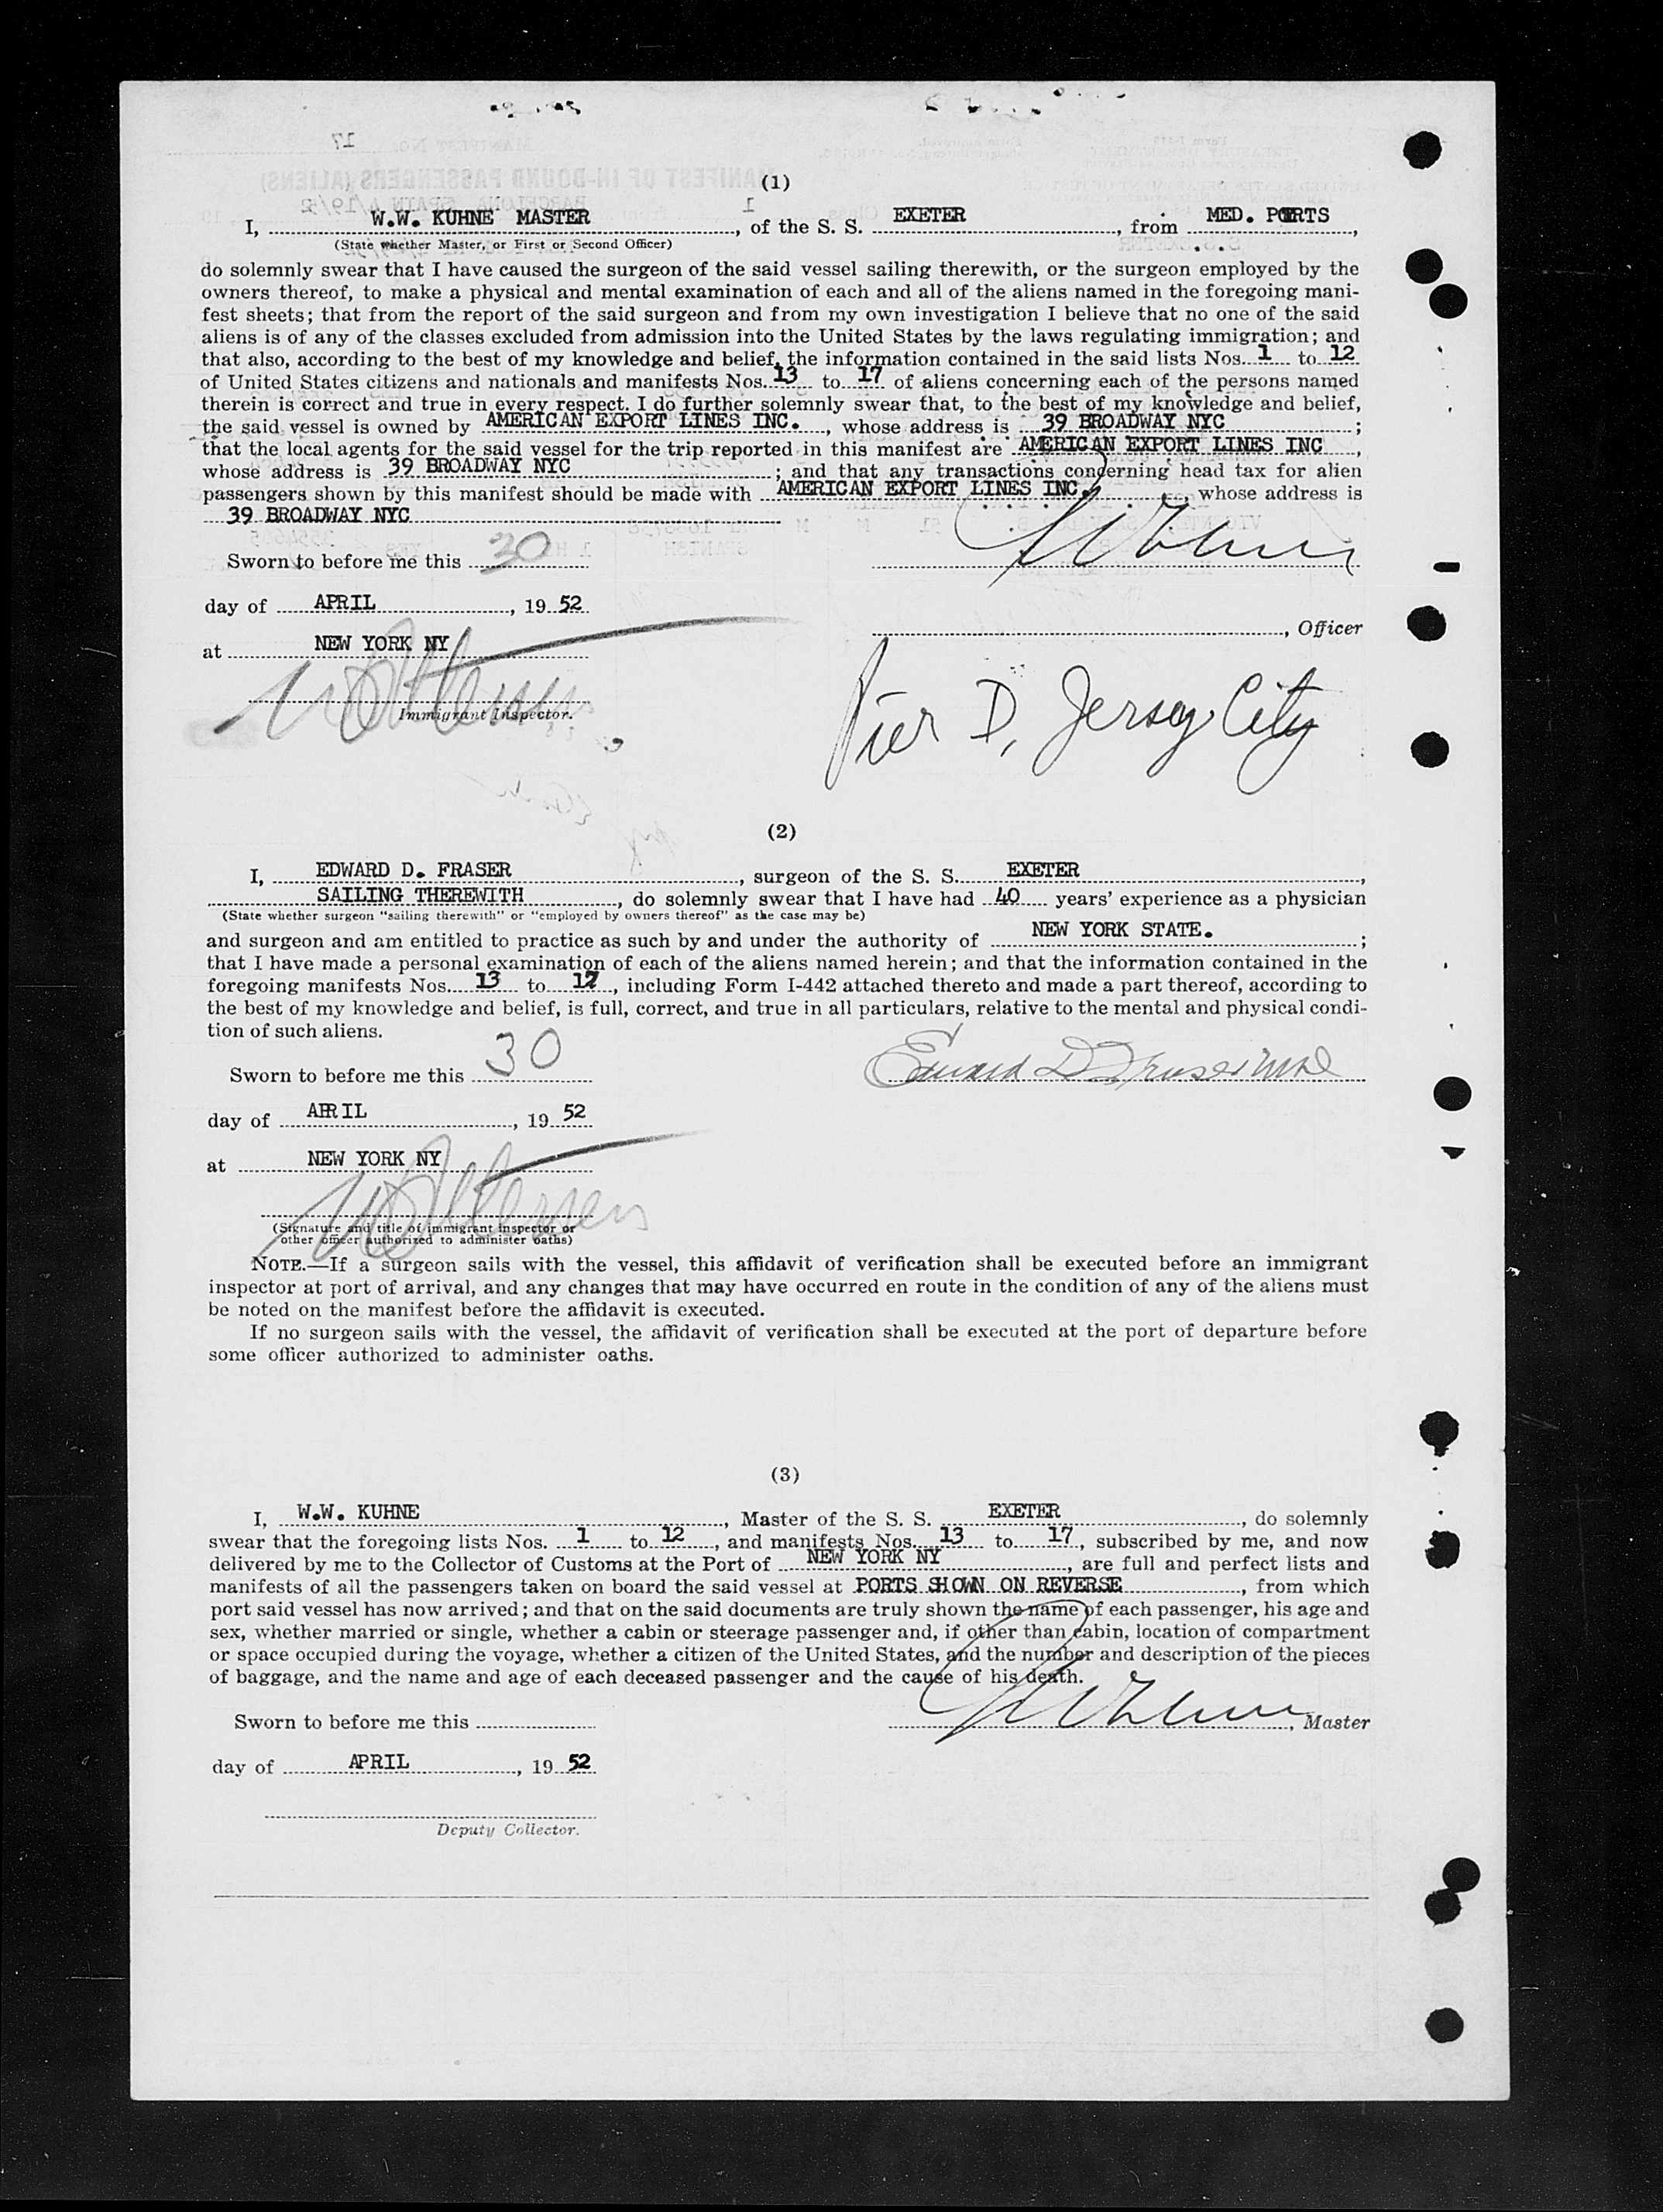 (1)
I, W.W. KUHNE MASTER, of the S. S. EXETER, from MED. PORTS,
(State whether Master, or First or Second Officer)
do solemnly swear that I have caused the surgeon of the said vessel sailing therewith, or the surgeon employed by the
owners thereof, to make a physical and mental examination of each and all of the aliens named in the foregoing mani-
fest sheets; that from the report of the said surgeon and from my own investigation I believe that no one of the said
aliens is of any of the classes excluded from admission into the United States by the laws regulating immigration; and
that also, according to the best of my knowledge and belief, the information contained in the said lists Nos. 1 to 12
of United States citizens and nationals and manifests Nos. 13 to 17 of aliens concerning each of the persons named
therein is correct and true in every respect. I do further solemnly swear that, to the best of my knowledge and belief,
the said vessel is owned by AMERICAN EXPORT LINES INC., whose address is 39 BROADWAY NYC;
that the local agents for the said vessel for the trip reported in this manifest are AMERICAN EXPORT LINES INC,
whose address is 39 BROADWAY NYC; and that any transactions concerning head tax for alien
passengers shown by this manifest should be made with AMERICAN EXPORT LINES INC., whose address is
39 BROADWAY NYC
Sworn to before me this 30
day of APRIL, 19 52
, Officer
at NEW YORK NY
Immigrant Inspector.
Pier D, Jersey City
(2)
I, EDWARD D. FRASER, surgeon of the S. S. EXETER,
SAILING THEREWITH, do solemnly swear that I have had 40 years' experience as a physician
(State whether surgeon "sailing therewith" or "employed by owners thereof" as the case may be)
and surgeon and am entitled to practice as such by and under the authority of NEW YORK STATE.;
that I have made a personal examination of each of the aliens named herein; and that the information contained in the
foregoing manifests Nos. 13 to 17, including Form I-442 attached thereto and made a part thereof, according to
the best of my knowledge and belief, is full, correct, and true in all particulars, relative to the mental and physical condi-
tion of such aliens.
Sworn to before me this 30
Edward D Fraser MD
day of APRIL, 19 52
at NEW YORK NY
(Signature and title of immigrant inspector or
other officer authorized to administer oaths)
NOTE.—If a surgeon sails with the vessel, this affidavit of verification shall be executed before an immigrant
inspector at port of arrival, and any changes that may have occurred en route in the condition of any of the aliens must
be noted on the manifest before the affidavit is executed.
If no surgeon sails with the vessel, the affidavit of verification shall be executed at the port of departure before
some officer authorized to administer oaths.
(3)
I, W.W. KUHNE, Master of the S. S. EXETER, do solemnly
swear that the foregoing lists Nos. 1 to 12, and manifests Nos. 13 to 17, subscribed by me, and now
delivered by me to the Collector of Customs at the Port of NEW YORK NY, are full and perfect lists and
manifests of all the passengers taken on board the said vessel at PORTS SHOWN ON REVERSE, from which
port said vessel has now arrived; and that on the said documents are truly shown the name of each passenger, his age and
sex, whether married or single, whether a cabin or steerage passenger and, if other than cabin, location of compartment
or space occupied during the voyage, whether a citizen of the United States, and the number and description of the pieces
of baggage, and the name and age of each deceased passenger and the cause of his death.
Sworn to before me this
, Master
day of APRIL, 19 52
Deputy Collector.